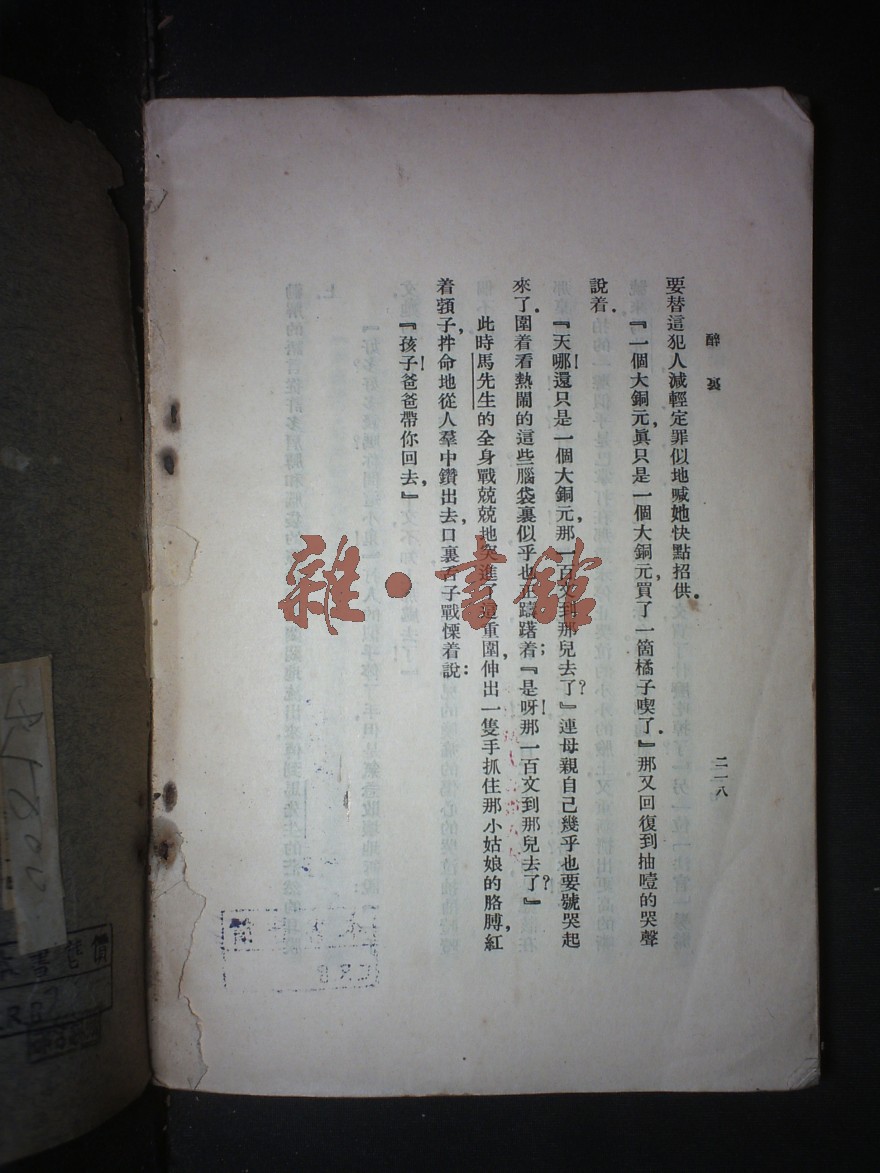 醉裏
二一八
要替這犯人減輕定罪似地喊她快點招供．
『一個大銅元，眞只是一個大銅元，買了一箇橘子喫了．』那又回復到抽噎的哭聲
說着．
『天哪！還只是一個大銅元，那一百文到那兒去了？』連母親自己幾乎也要號哭起
來了．圍着看熱鬧的這些腦袋裏似乎也正躊躇着；『是呀！那一百文到那兒去了？』
此時馬先生的全身戰兢兢地突進了這重圍，伸出一隻手抓住那小姑娘的胳膊，紅
着頸子，拌命地從人羣中鑽出去，口裏舌子戰慄着說：
『孩子！爸爸帶你回去，』
雜·書館
書 價